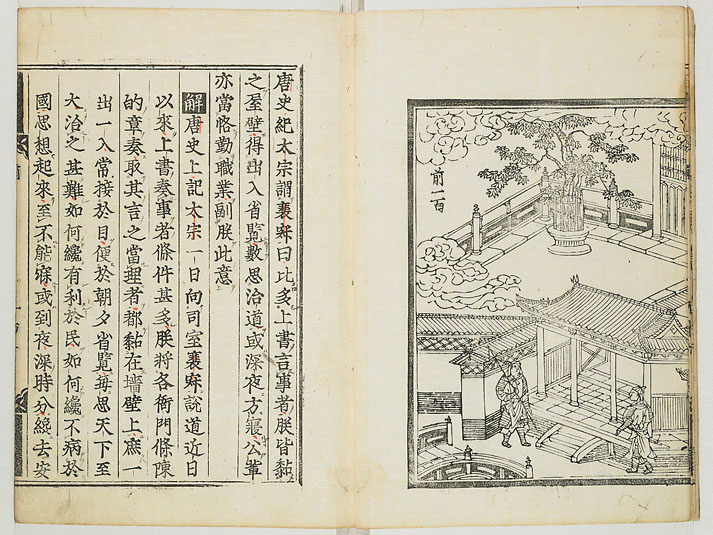 前一百
唐史紀太宗謂裴寂曰比多上書言事者朕皆黏
之屋壁得出入省覽數思治道或深夜方寢公輩
亦當恪勤職業副朕此意
解唐史上記太宗一日向司空裴寂說道近日
以來上書奏事者條件甚多朕將各衙門條陳
的章奏取其言之當理者都黏在墻壁上庶一
出一入常接於目便於朝夕省覽每思天下至
大治之甚難如何纔有利於民如何纔不病於
國思想起來至不能寐或到夜深時分纔去安